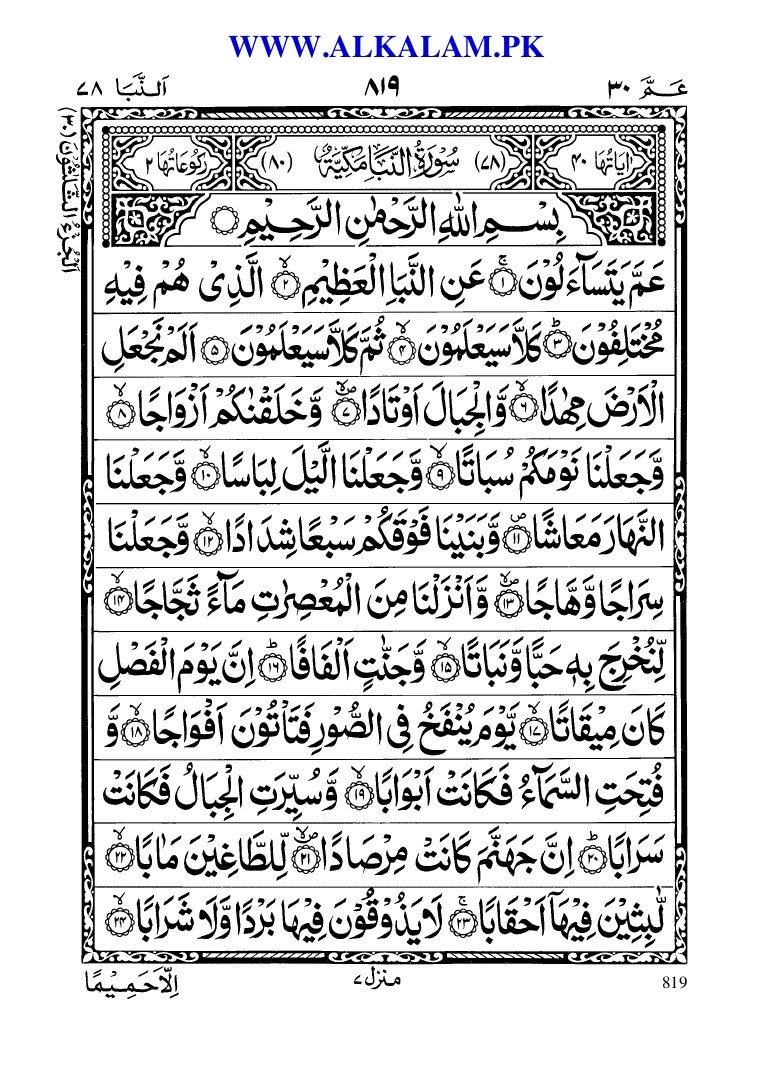 WWW.ALKALAM.PK
عَمَّ ٣٠ ٨١٩ اَلنَّبَا ٧٨
اٰيَاتُهَا ٤٠ (٧٨) سُوْرَةُ النَّبَاِ مَكِّيَّةٌ (٨٠) رُكُوْعَاتُهَا ٢
اَلْجُزْءُ الثَّلٰثُوْنَ (٣٠)
بِسْمِ اللّٰهِ الرَّحْمٰنِ الرَّحِيْمِ
عَمَّ يَتَسَآءَلُوْنَ ۚ﴿١﴾ عَنِ النَّبَاِ الْعَظِيْمِ ۙ﴿٢﴾ الَّذِىْ هُمْ فِيْهِ
مُخْتَلِفُوْنَ ؕ﴿٣﴾ كَلَّا سَيَعْلَمُوْنَ ۙ﴿٤﴾ ثُمَّ كَلَّا سَيَعْلَمُوْنَ ﴿٥﴾ اَلَمْ نَجْعَلِ
الْاَرْضَ مِهٰدًا ۙ﴿٦﴾ وَّالْجِبَالَ اَوْتَادًا ۪ۙ﴿٧﴾ وَّخَلَقْنٰكُمْ اَزْوَاجًا ۙ﴿٨﴾
وَّجَعَلْنَا نَوْمَكُمْ سُبَاتًا ۙ﴿٩﴾ وَّجَعَلْنَا الَّيْلَ لِبَاسًا ۙ﴿١٠﴾ وَّجَعَلْنَا
النَّهَارَ مَعَاشًا ۪﴿١١﴾ وَّبَنَيْنَا فَوْقَكُمْ سَبْعًا شِدَادًا ۙ﴿١٢﴾ وَّجَعَلْنَا
سِرَاجًا وَّهَّاجًا ۪ۙ﴿١٣﴾ وَّاَنْزَلْنَا مِنَ الْمُعْصِرٰتِ مَآءً ثَجَّاجًا ۙ﴿١٤﴾
لِّنُخْرِجَ بِهٖ حَبًّا وَّنَبَاتًا ۙ﴿١٥﴾ وَّجَنّٰتٍ اَلْفَافًا ؕ﴿١٦﴾ اِنَّ يَوْمَ الْفَصْلِ
كَانَ مِيْقَاتًا ۙ﴿١٧﴾ يَّوْمَ يُنْفَخُ فِى الصُّوْرِ فَتَاْتُوْنَ اَفْوَاجًا ۙ﴿١٨﴾ وَّ
فُتِحَتِ السَّمَآءُ فَكَانَتْ اَبْوَابًا ۙ﴿١٩﴾ وَّسُيِّرَتِ الْجِبَالُ فَكَانَتْ
سَرَابًا ؕ﴿٢٠﴾ اِنَّ جَهَنَّمَ كَانَتْ مِرْصَادًا ۪ۙ﴿٢١﴾ لِّلطَّاغِيْنَ مَاٰبًا ۙ﴿٢٢﴾
لّٰبِثِيْنَ فِيْهَآ اَحْقَابًا ۚ﴿٢٣﴾ لَا يَذُوْقُوْنَ فِيْهَا بَرْدًا وَّلَا شَرَابًا ۙ﴿٢٤﴾
819 منزل ٧ اِلَّا حَمِيْمًا